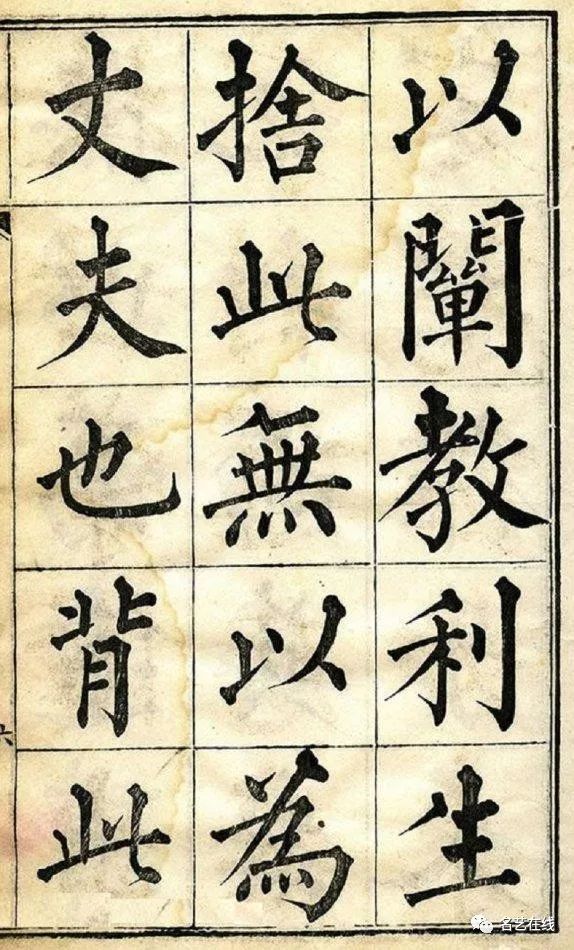 以闡教利生
捨此無以為
丈夫也背此
六
名艺在线